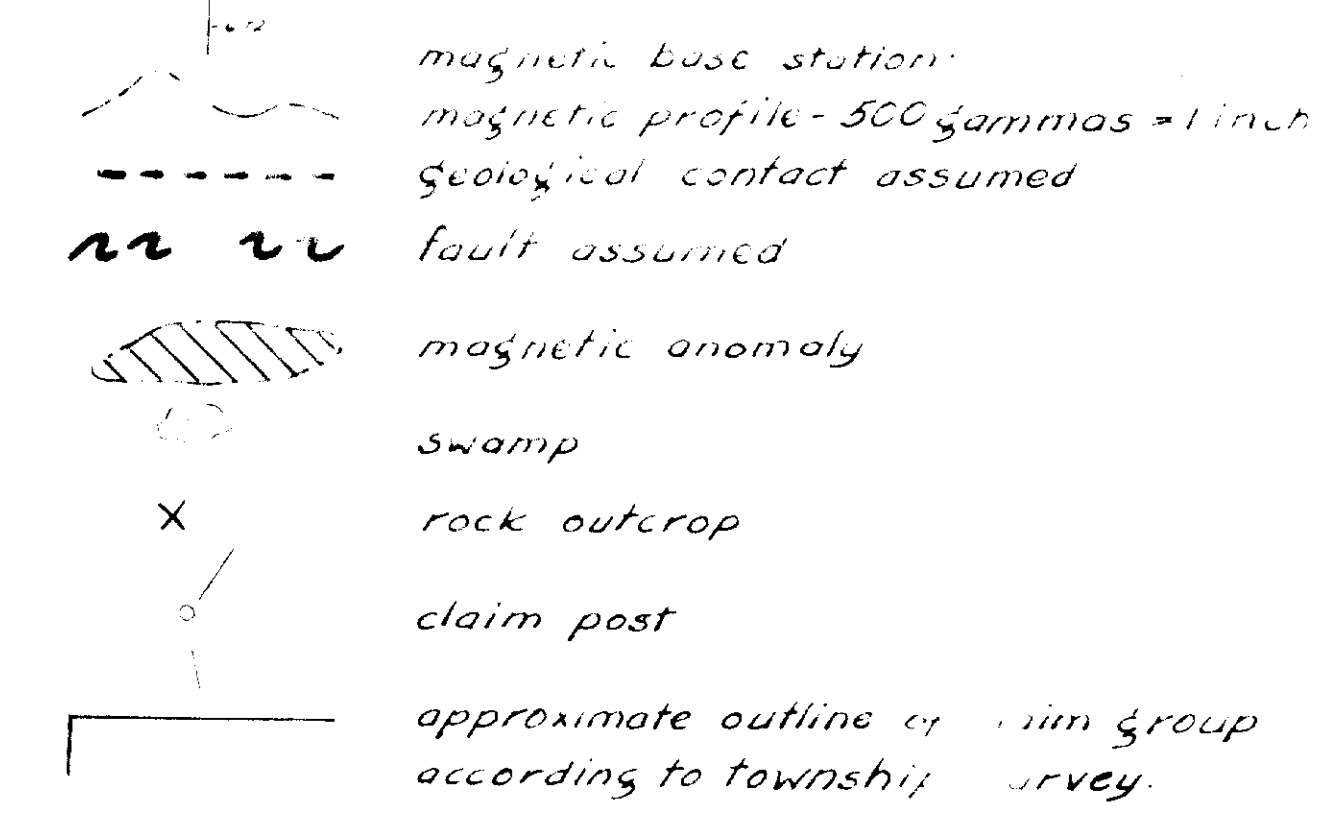 magnetic base station.
magnetic profile - 500 gammas = 1 inch
geological contact assumed
fault assumed
magnetic anomaly
swamp
rock outcrop
claim post
approximate outline group
according to township